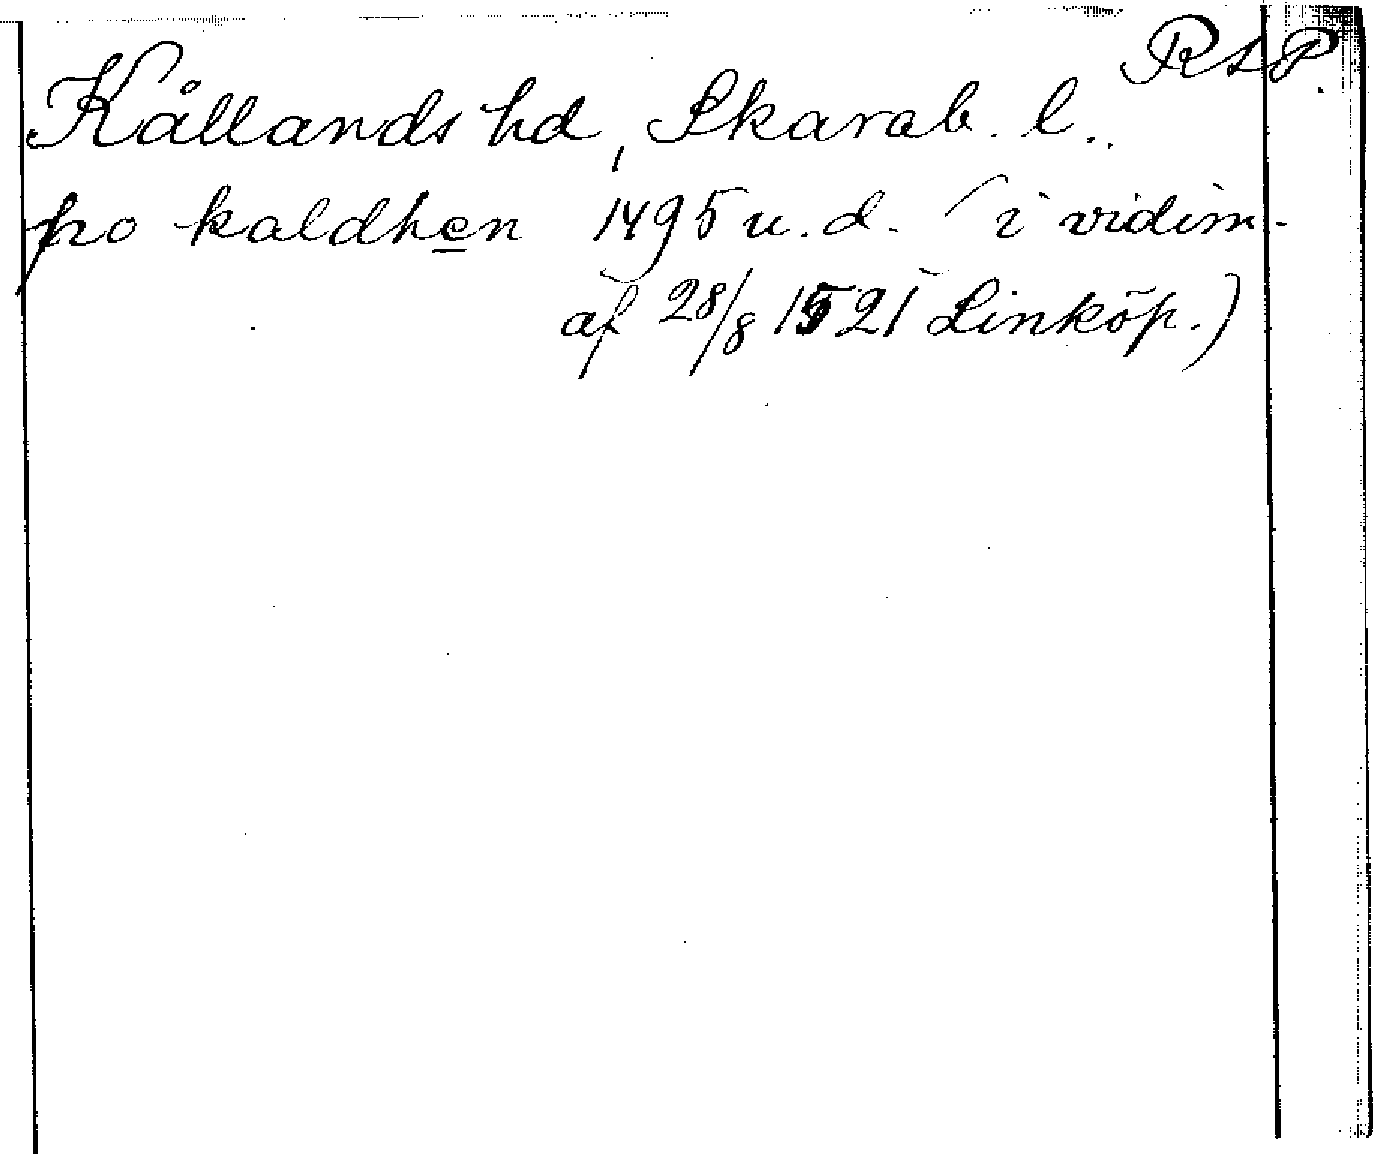 RAP.
Kållands hd, Skarab. l.
po kaldhen 1495 u. d. (i vidim-
af 28/8 1521 Linköp.)